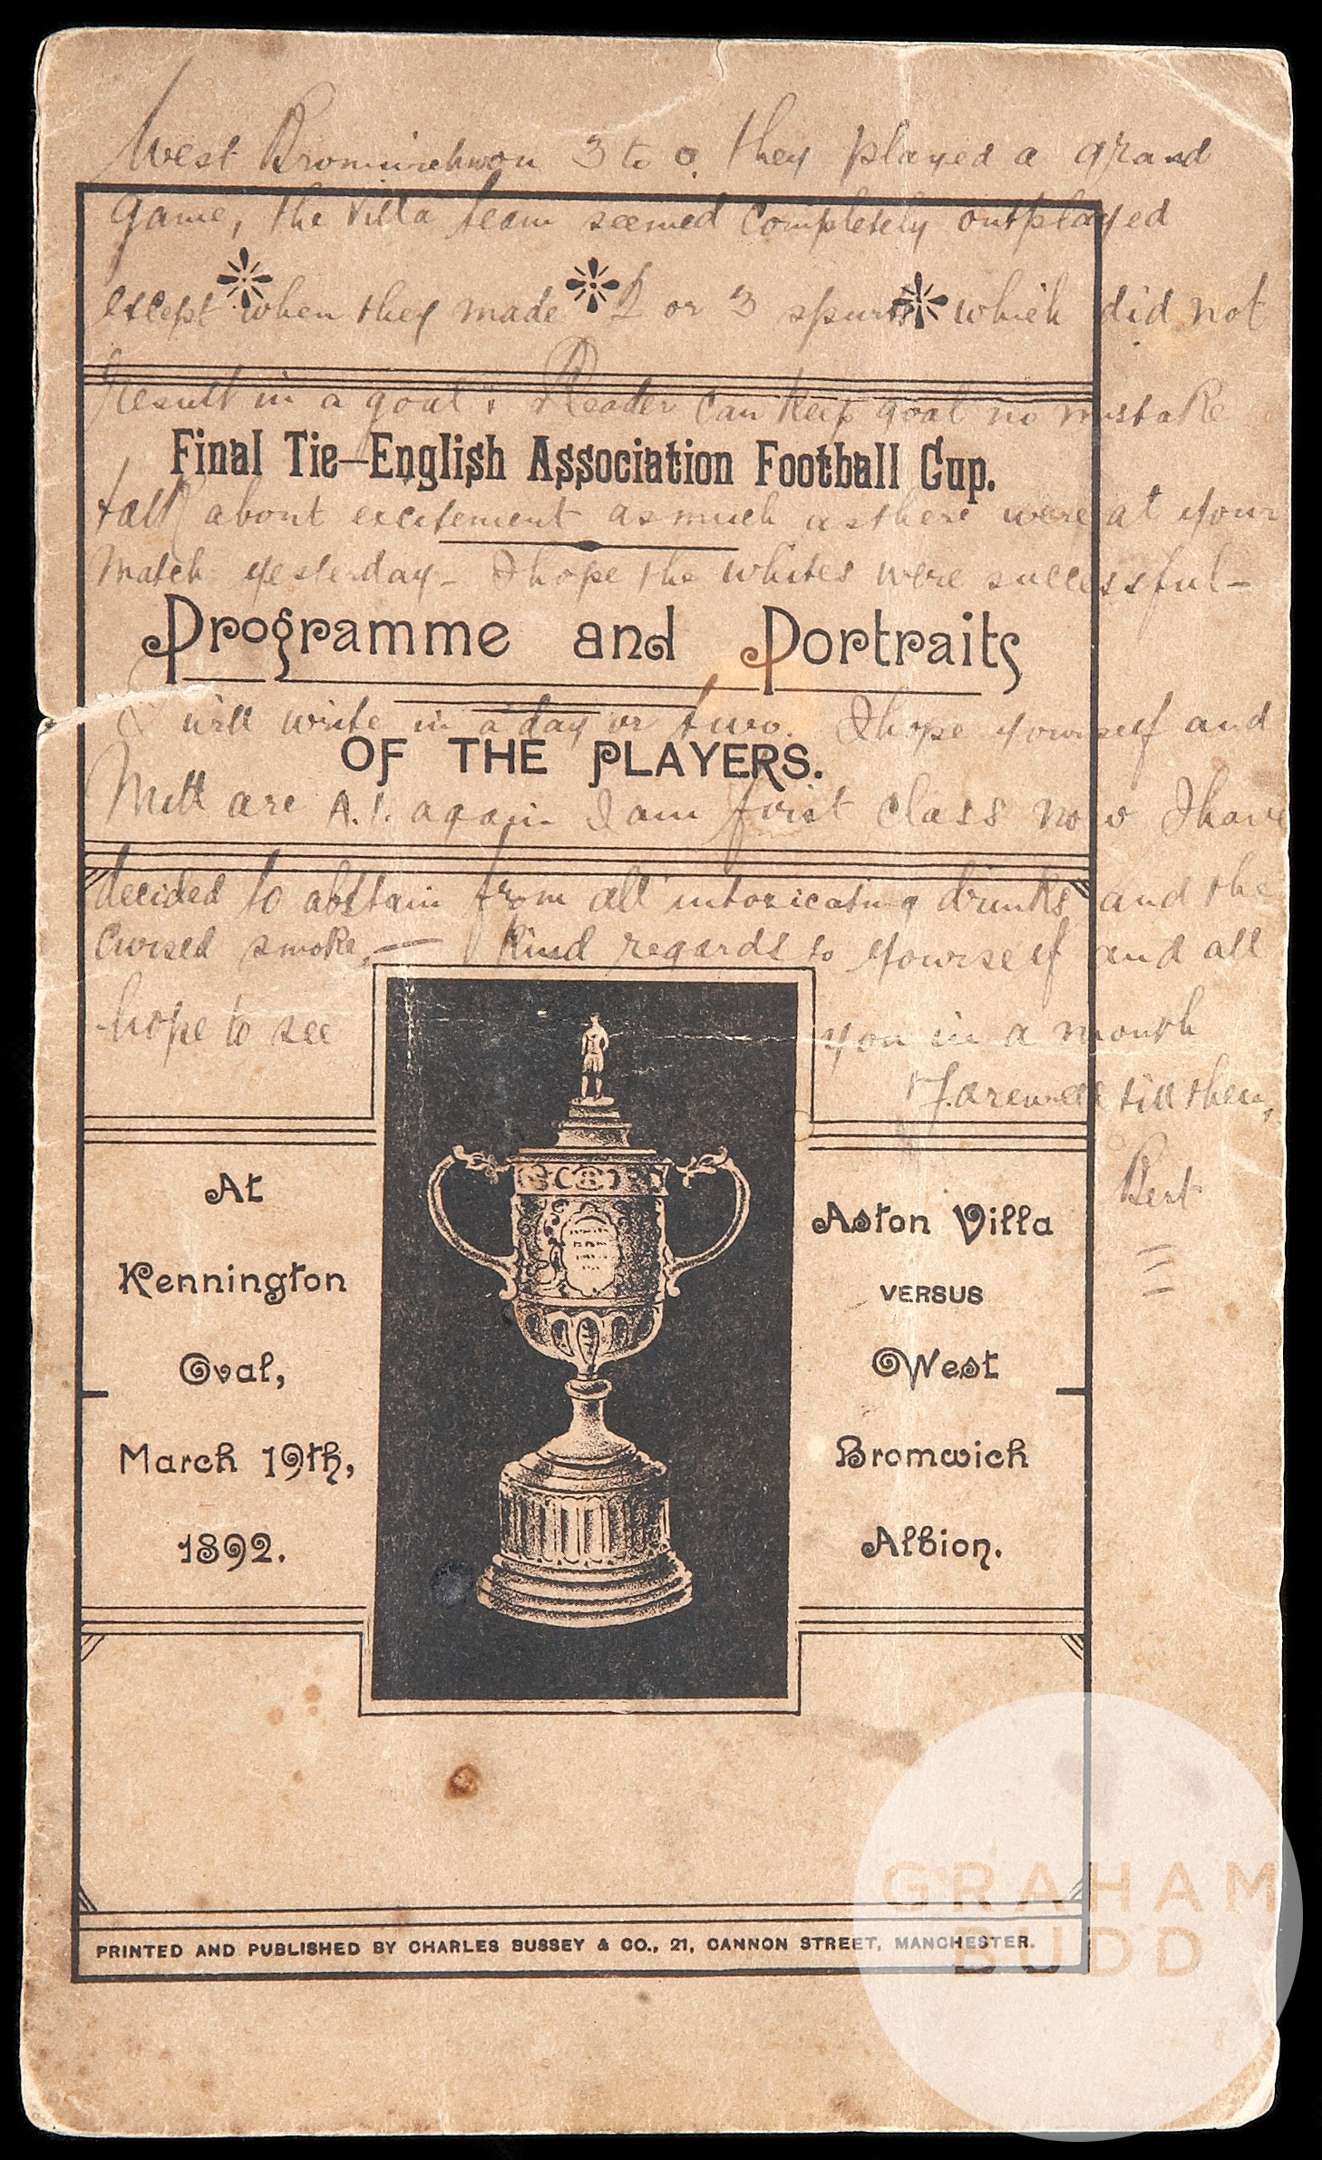 West Bromwich won 3 to 0. they played a grand
game, the Villa team seemed completely outplayed
except when they made 2 or 3 spurts which did not
result in a goal & Reader can keep goal no mistake
talk about excitement as much as there were at your
match yesterday - I hope the whites were successful -
I will write in a day or two. I hope yourself and
are A.1. again I am first class now I have
decided to abstain from all intoxicating drinks and the
cursed smoke, — Kind regards to yourself and all
hope to see you in a month
Farewell till then,
Bert
Final Tie—English Association Football Cup.
Programme and Portraits
OF THE PLAYERS.
At
Kennington
Oval,
March 19th,
1892.
Aston Villa
VERSUS
West
Bromwich
Albion.
PRINTED AND PUBLISHED BY CHARLES BUSSEY & CO., 21, CANNON STREET, MANCHESTER.
GRAHAM
BUDD